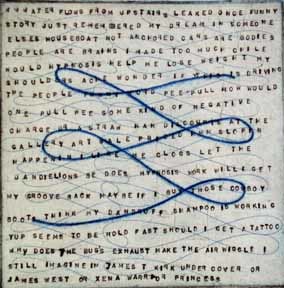 WATER FLOWS FROM UPSTAIRS LEAKED ONCE FUNNY
STORY JUST REMEMBERED MY DREAM IN SOMEONE
ELSES HOUSEBOAT NOT ANCHORED CANS ARE BODIES
PEOPLE ARE BRAINS I MADE TOO MUCH CHILE
WOULD HYPNOSIS HELP ME LOSE WEIGHT MY
SHOULD ACHE WONDER IF THIS IS DRIVING
THE PEOPLE HOW WOULD
ONE PULL PEE SOME KIND OF NEGATIVE
CHARGE STRAW MAN DISCOUNT AT THE
GALLERY ART WALK
HAPPENIN CLOGS LET THE
DANDELIONS BE DOES HYPNOSIS WORK WILL I GET
MY GROOVE BACK MAYBE IF I BUY THOSE COWBOY
BOOTS THINK MY DANDRUFF SHAMPOO IS WORKING
YUP SEEMS TO BE HOLD FAST SHOULD I GET A TATTOO
WHY DOES THE BUGS EXHAUST MAKE THE AIR WIGGLE I
STILL IMAGINE IM JAMES T KIRK UNDER COVER OR
JAMES WEST OR XENA WARRIOR PRINCESS